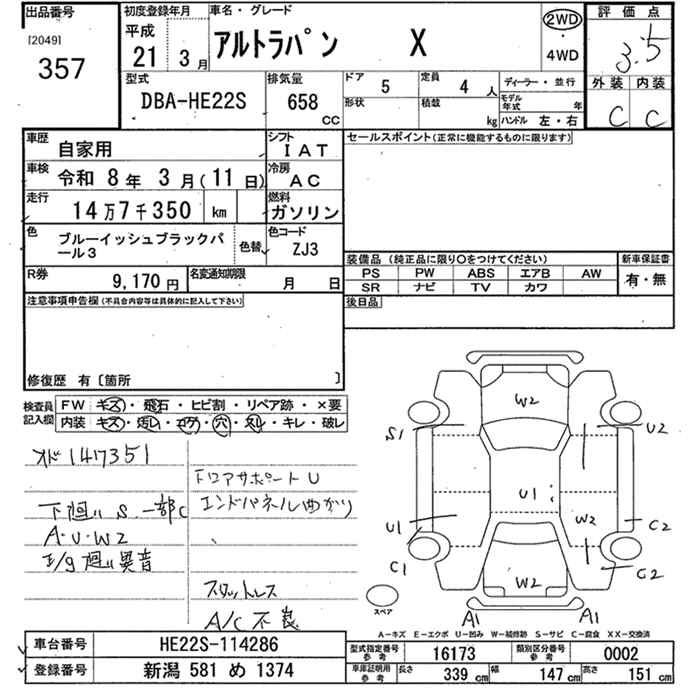 出品番号
[2049]
357
初度登録年月
平成
21 3月
車名・グレード
アルトラパン X
2WD
・
4WD
評価点
3.5
外装 内装
C C
型式
DBA-HE22S
排気量
658 CC
ドア 5
形状
定員 4 人
積載 kg
ディーラー・並行
モデル年式 年
ハンドル 左・右
車歴 自家用
シフト IAT
車検 令和 8年 3月(11日)
冷房 AC
走行 14万7千350 km
燃料 ガソリン
色 ブルーイッシュブラックパール3
色替
色コード ZJ3
R券 9,170円
名変通知期限 月 日
セールスポイント(正常に機能するものに限ります)
装備品(純正品に限り○をつけてください)
PS PW ABS エアB AW
SR ナビ TV カワ
新車保証書
有・無
後日品
注意事項申告欄(不具合内容等は具体的に記入して下さい)
修復歴 有〔箇所 〕
検査員記入欄
FW キズ・飛石・ヒビ割・リペア跡・×要
内装 キズ・汚レ・コゲ・穴・スレ・キレ・破レ
オド147351
下廻りS.一部C
A・U・W2
E/g廻り異音
ドロアサポートU
エンドパネル曲がり
スロットレス
A/C不良
W2
S1
U2
U1
U1
W2
C2
C1
W2
C2
A1
A1
スペア
A-キズ E-エクボ U-凹み W-補修跡 S-サビ C-腐食 XX-交換済
車台番号 HE22S-114286
登録番号 新潟 581 め 1374
型式指定番号 参考 16173
類別区分番号 参考 0002
車庫証明用 参考 長さ 339 cm 幅 147 cm 高さ 151 cm